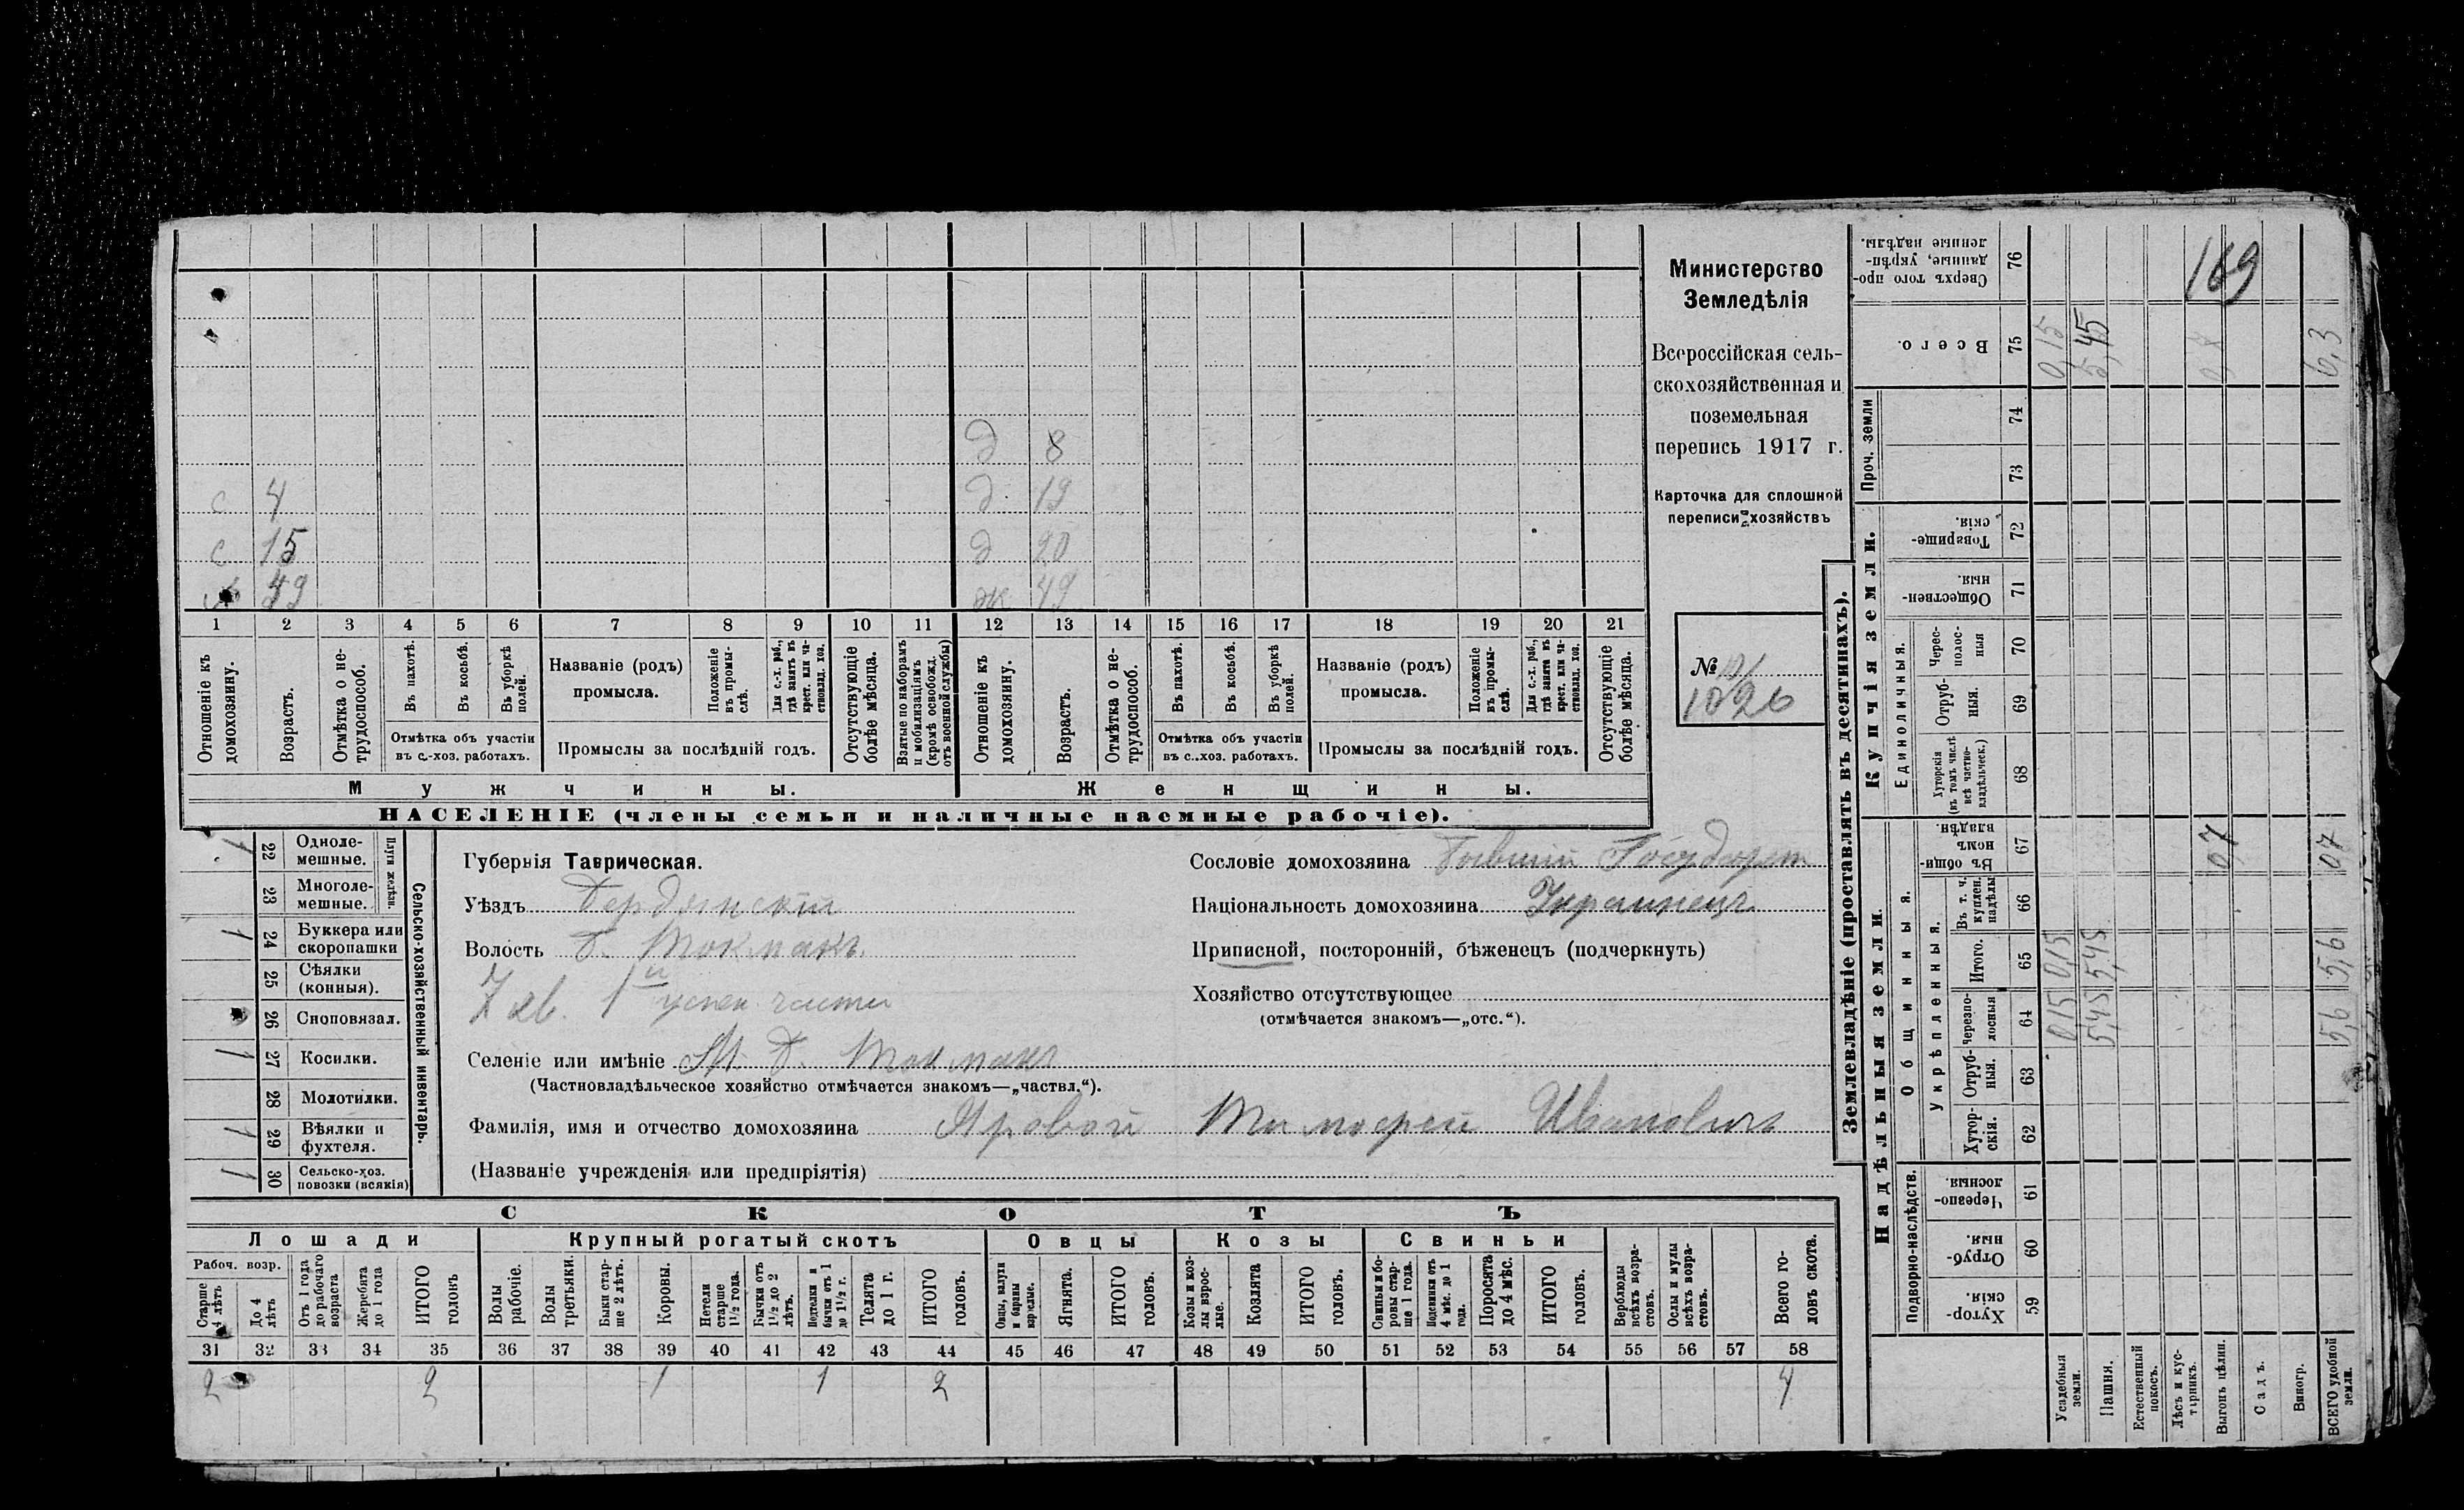 Министерство
Земледѣлія
Всероссійская сель-
скохозяйственная и
поземельная
перепись 1917 г.
Карточка для сплошной
переписи хозяйствъ
№
1026
д 8
с 4 д 19
с 15 д 20
49 ж 49
1 2 3 4 5 6 7 8 9 10 11 12 13 14 15 16 17 18 19 20 21
Отношеніе къ домохозяину.
Возрастъ.
Отмѣтка о не-трудоспособ.
Въ пахотѣ.
Въ косьбѣ.
Въ уборкѣ полей.
Отмѣтка объ участіи
въ с.-хоз. работахъ.
Названіе (родъ)
промысла.
Положеніе въ промы-слѣ.
Для с.-х. раб., гдѣ занятъ въ крест. или ча-стновлад. хоз.
Промыслы за послѣдній годъ.
Отсутствующіе болѣе мѣсяца.
Взятые по наборамъ и мобилизаціямъ (кромѣ освобожд. отъ военной службы)
Отношеніе къ домохозяину.
Возрастъ.
Отмѣтка о не-трудоспособ.
Въ пахотѣ.
Въ косьбѣ.
Въ уборкѣ полей.
Отмѣтка объ участіи
въ с.-хоз. работахъ.
Названіе (родъ)
промысла.
Положеніе въ промы-слѣ.
Для с.-х. раб., гдѣ занята въ крест. или ча-стновлад. хоз.
Промыслы за послѣдній годъ.
Отсутствующіе болѣе мѣсяца.
Мужчины. Женщины.
НАСЕЛЕНІЕ (члены семьи и наличные наемные рабочіе).
Сельско-хозяйственный инвентарь.
Плуги желѣзн.
1 22 Одноле-мешные.
23 Многоле-мешные.
1 24 Буккера или скоропашки
25 Сѣялки (конныя).
26 Сноповязал.
1 27 Косилки.
28 Молотилки.
1 29 Вѣялки и фухтеля.
1 30 Сельско-хоз. повозки (всякія)
Губернія Таврическая.
Уѣздъ Бердянскій
Волость Б. Токмакъ
7 кв. 1й части
Селеніе или имѣніе М. Б. Токмакъ
(Частновладѣльческое хозяйство отмѣчается знакомъ—„частвл.“).
Фамилія, имя и отчество домохозяина Яровой Тимофей Ивановичъ
(Названіе учрежденія или предпріятія)
Сословіе домохозяина Бывший Государст
Національность домохозяина Украинецъ
Приписной, посторонній, бѣженецъ (подчеркнуть)
Хозяйство отсутствующее
(отмѣчается знакомъ—„отс.“).
СКОТЪ
Лошади Крупный рогатый скотъ Овцы Козы Свиньи
Рабоч. возр.
Старше 4 лѣтъ
До 4 лѣтъ
Отъ 1 года до рабочаго возраста
Жеребята до 1 года
ИТОГО головъ
Волы рабочіе.
Волы третьяки.
Быки стар-ше 2 лѣтъ.
Коровы.
Нетели старше 1½ года.
Бычки отъ 1½ до 2 лѣтъ.
Подтелки и бычки отъ 1 до 1½ г.
Телята до 1 г.
ИТОГО головъ.
Овцы, валухи и бараны взрослые.
Ягнята.
ИТОГО головъ.
Козы и коз-лы взрос-лые.
Козлята
ИТОГО головъ.
Свиньи и бо-ровы стар-ше 1 года.
Подсвинки отъ 4 мѣс. до 1 года.
Поросята до 4 мѣс.
ИТОГО головъ.
Верблюды всѣхъ возра-стовъ.
Ослы и мулы всѣхъ возра-стовъ.
Всего го-ловъ скота.
31 32 33 34 35 36 37 38 39 40 41 42 43 44 45 46 47 48 49 50 51 52 53 54 55 56 57 58
2 2 1 1 2 4
Землевладѣніе (проставлять въ десятинахъ).
Надѣльныя земли.
Купчія земли.
Проч. земли
Подворно-наслѣдств.
Общинныя.
Укрѣпленныя.
Единоличныя.
Хутор-скія. 59
Отруб-ныя. 60
Черезпо-лосныя. 61
Хутор-скія. 62
Отруб-ныя. 63
Черезпо-лосныя 64
Итого. 65
Въ т. ч. куплен. надѣлы 66
Въ общин-номъ владѣн. 67
Хуторскія (въ томъ числѣ всѣ частно-владѣльческ.) 68
Отруб-ныя. 69
Черес-полос-ныя 70
Обществен-ныя. 71
Товарище-скія. 72
73
74
Всего. 75
Сверхъ того про-данные, укрѣп-ленные надѣлы. 76
Усадебныя земли. 0,15 0,15 0,15
Пашня. 5,45 5,45 5,45
Естественный покосъ.
Лѣсъ и кус-тарникъ.
Выгонъ цѣлин. 07
Садъ.
Виногр.
ВСЕГО удобной земли. 5,6 5,6 07 6,3
169